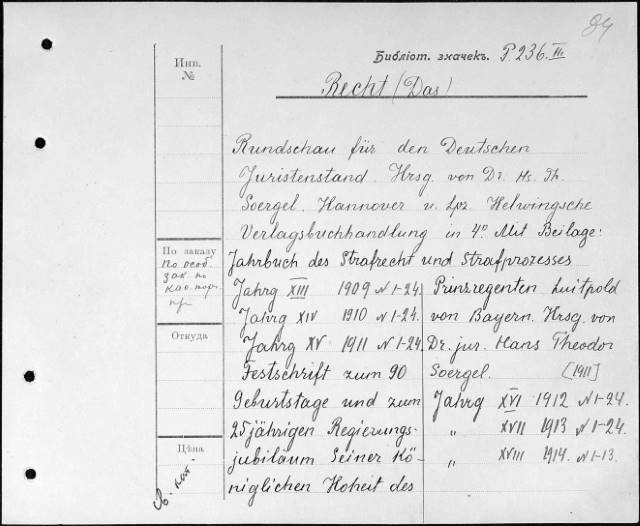 84
Библіот. значекъ. P. 236 II.
Инв.
№
Recht (Das)
Rundschau für den Deutschen
Juristenstand. Hrsg. von Dr. Hs. Th.
Soergel. Hannover u. Lpz. Helwingsche
Verlagsbuchhandlung in 4° Mit Beilage:
По заказу
По особ.
зак. по
Jahrbuch des Strafrecht und Strafprozesses
Jahrg XIII 1909 N 1-24.
Jahrg XIV 1910 N 1-24.
Jahrg XV 1911 N 1-24.
Festschrift zum 90
Geburtstage und zum
25jährigen Regierungs-
jubiläum Seiner Kö-
niglichen Hoheit des
Prinzregenten Luitpold
von Bayern. Hrsg. von
Dr. jur. Hans Theodor
Soergel. [1911]
Jahrg XVI 1912 N 1-24.
" XVII 1913 N 1-24.
" XVIII 1914. N 1-13.
Откуда
Цѣна